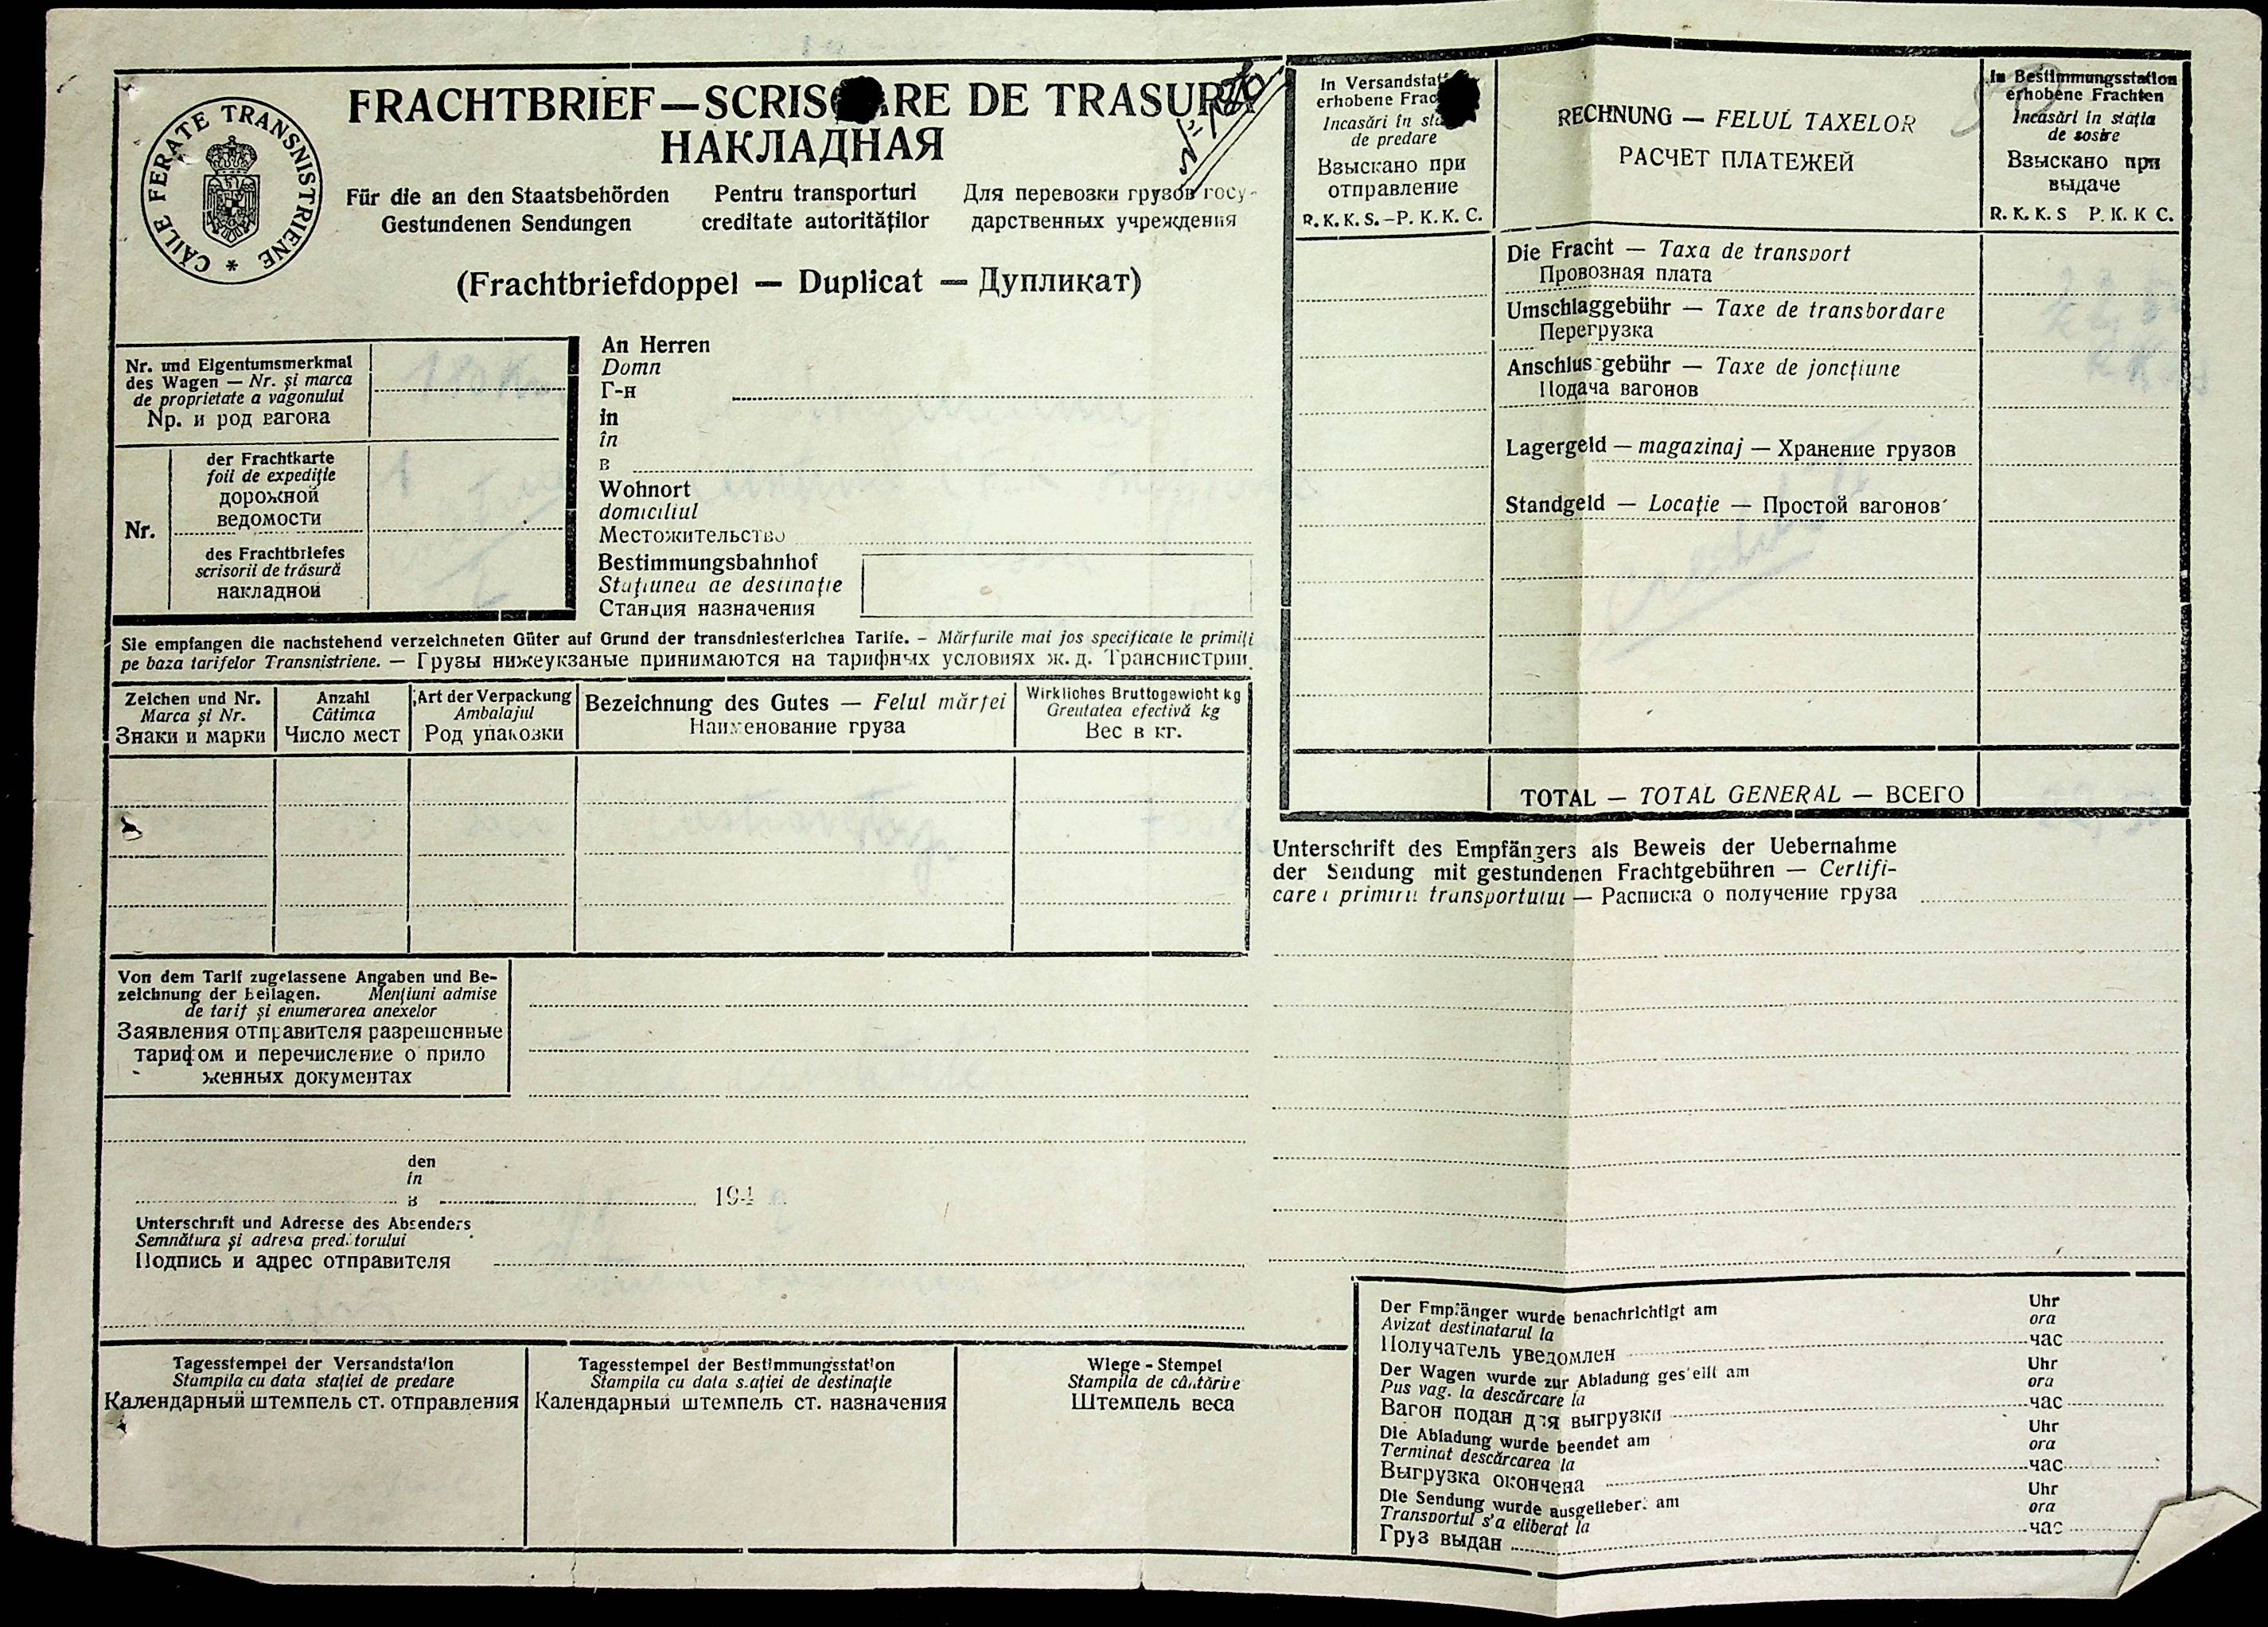 CĂILE FERATE TRANSNISTRIENE *
FRACHTBRIEF — SCRIS RE DE TRASURA
НАКЛАДНАЯ
Für die an den Staatsbehörden
Gestundenen Sendungen
Pentru transporturi
creditate autorităților
Для перевозки грузов госу-
дарственных учреждения
(Frachtbriefdoppel — Duplicat — Дупликат)
Nr. und Eigentumsmerkmal
des Wagen — Nr. și marca
de proprietate a vagonului
Nр. и род вагона
Nr.
der Frachtkarte
foii de expediție
дорожной
ведомости
des Frachtbriefes
scrisorii de trăsură
накладной
An Herren
Domn
Г-н
in
în
в
Wohnort
domiciliul
Местожительство
Bestimmungsbahnhof
Stațiunea de destinație
Станция назначения
Sie empfangen die nachstehend verzeichneten Güter auf Grund der transdniesterichea Tarife. – Mărfurile mai jos specificate le primiți
pe baza tarifelor Transnistriene. — Грузы нижеуказаные принимаются на тарифных условиях ж. д. Транснистрии.
Zeichen und Nr.
Marca și Nr.
Знаки и марки
Anzahl
Câtimea
Число мест
Art der Verpackung
Ambalajul
Род упаковки
Bezeichnung des Gutes — Felul mărfei
Наименование груза
Wirkliches Bruttogewicht kg
Greutatea efectivă kg
Вес в кг.
Von dem Tarif zugelassene Angaben und Be-
zeichnung der Beilagen. Mențiuni admise
de tarif și enumerarea anexelor
Заявления отправителя разрешенные
тарифом и перечисление о прило
женных документах
den
in
в 194
Unterschrift und Adresse des Absenders
Semnătura și adresa pred.torului
Подпись и адрес отправителя
Tagesstempel der Versandstation
Stampila cu data stației de predare
Календарный штемпель ст. отправления
Tagesstempel der Bestimmungsstation
Stampila cu data stației de destinație
Календарный штемпель ст. назначения
Wiege - Stempel
Stampila de cântărire
Штемпель веса
In Versandstat
erhobene Frac
Incasări în sta
de predare
Взыскано при
отправление
R. K. K. S. – Р. К. К. С.
RECHNUNG — FELUL TAXELOR
РАСЧЕТ ПЛАТЕЖЕЙ
In Bestimmungsstation
erhobene Frachten
Incasări in stația
de sosire
Взыскано при
выдаче
R. K. K. S Р. К. К С.
Die Fracht — Taxa de transport
Провозная плата
Umschlaggebühr — Taxe de transbordare
Перегрузка
Anschlus gebühr — Taxe de joncțiune
Подача вагонов
Lagergeld — magazinaj — Хранение грузов
Standgeld — Locație — Простой вагонов
TOTAL — TOTAL GENERAL — ВСЕГО
Unterschrift des Empfängers als Beweis der Uebernahme
der Sendung mit gestundenen Frachtgebühren — Certifi-
care primirii transportului — Расписка о получение груза
Der Empfänger wurde benachrichtigt am Uhr
Avizat destinatarul la ora
Получатель уведомлен час
Der Wagen wurde zur Abladung gesteilt am Uhr
Pus vag. la descărcare la ora
Вагон подан для выгрузки час
Die Abladung wurde beendet am Uhr
Terminat descărcarea la ora
Выгрузка окончена час
Die Sendung wurde ausgelieber: am Uhr
Transportul s'a eliberat la ora
Груз выдан час